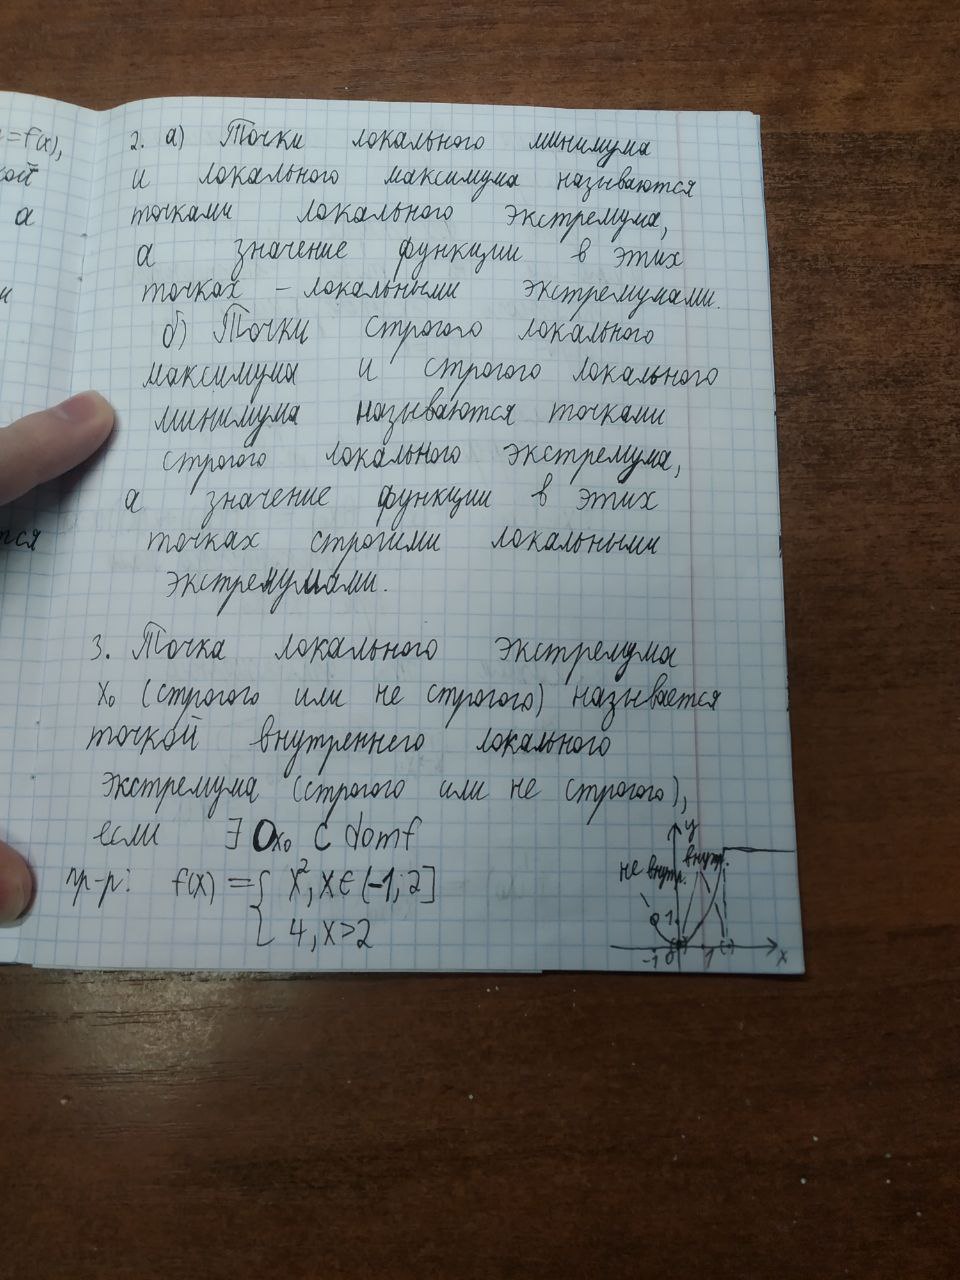 =f(x),
кой
а
и
тся
2. а) Точки локального минимума
и локального максимума называются
точками локального экстремума,
а значение функции в этих
точках – локальными экстремумами.
б) Точки строгого локального
максимума и строгого локального
минимума называются точками
строгого локального экстремума,
а значение функции в этих
точках строгими локальными
экстремумами.
3. Точка локального экстремума
x₀ (строгого или не строгого) называется
точкой внутреннего локального
экстремума (строгого или не строгого),
если ∃ Oₓ₀ ⊂ domf
пр-р: f(x) = { x², x ∈ (-1; 2]
4, x > 2
y
не внутр.
внутр.
1
-1 0 1 x